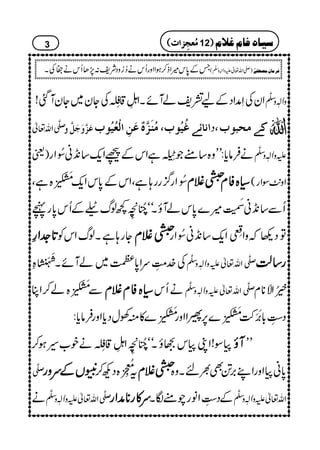 سیاہ فام غلام (12 مُعجِزات) 3
فرمانِ مصطفٰے (صلی اللہ تعالیٰ علیہ والہ وسلم) جس کے پاس میرا ذکر ہوا اور اُس نے دُرُود شریف نہ پڑھا اُس نے جفا کی۔
والہٖ وسلَّم ان کی امداد کے لیے تشریف لے آئے۔ اہلِ قافلہ کی جان میں جان آ گئی!
اللہ کے محبوب، دانائے غُیُوب، مُنَزَّہٌ عَنِ الْعُیُوب عَزَّوَجَلَّ وصلَّی اللہ تعالیٰ
علیہ والہٖ وسلَّم نے فرمایا: ”وہ سامنے جو ٹیلہ ہے اس کے پیچھے ایک سانڈنی سُوار (یعنی
اونٹ سوار) سیاہ فام حبشی غلام سُوار گزر رہا ہے، اس کے پاس ایک مَشکیزہ ہے،
اُسے سانڈنی سَمیت میرے پاس لے آؤ۔“ چُنانچِہ کچھ لوگ ٹیلے کے اُس پار پہنچے
تو دیکھا کہ واقِعی ایک سانڈنی سُوار حبشی غلام جا رہا ہے۔ لوگ اس کو تاجدارِ
رسالت صلَّی اللہ تعالیٰ علیہ والہٖ وسلَّم کی خدمتِ سراپا عظمت میں لے آئے۔ شَہَنْشاہِ
خیرُالْاَنام صلَّی اللہ تعالیٰ علیہ والہٖ وسلَّم نے اُس سیاہ فام غلام سے مَشکیزہ لے کر اپنا
دستِ بابَرَکت مَشکیزے پر پھیرا اور مَشکیزے کا منہ کھول دیا اور فرمایا:
”آؤ پیاسو! اپنی پیاس بجھاؤ۔“ چُنانچِہ اہلِ قافلہ نے خوب سیر ہو کر
پانی پیا اور اپنے برتن بھی بھر لئے۔ وہ حبشی غلام یہ مُعجِزہ دیکھ کر نبیوں کے سرور صلَّی
اللہ تعالیٰ علیہ والہٖ وسلَّم کے دستِ انور چومنے لگا۔ سرکارِ نامدار صلَّی اللہ تعالیٰ علیہ والہٖ وسلَّم نے